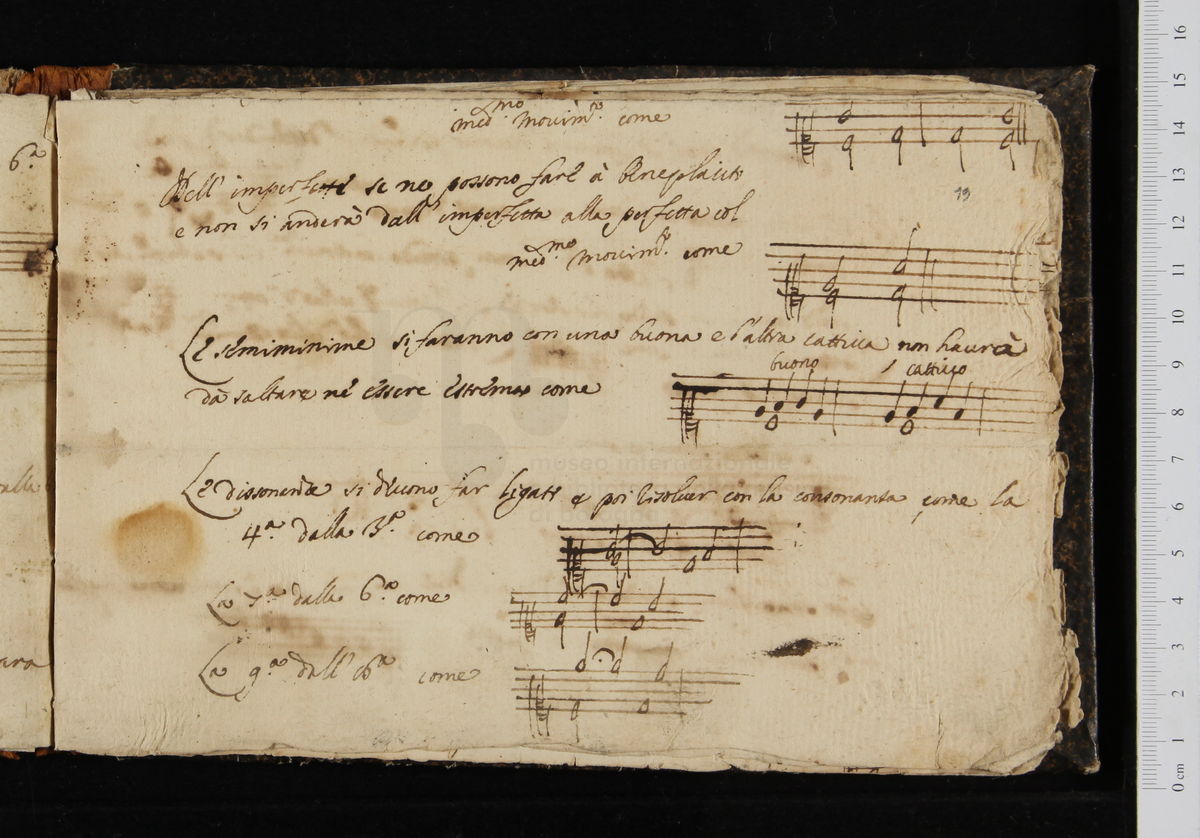 6.ª
med.mo movim.to come
Dell' imperfette se ne possono fare à Beneplacito
13
e non si anderà dall' imperfetta alla perfetta col
med.mo movim.to come
Le semiminime si faranno con una buona e l'altra cattiva non havrà
buono cattivo
da saltare nè essere estreme come
museo internazionale
Le dissonanze si devono far ligate e poi risolver con la consonanza come la
4.ª dalla 3.ª come
La 7.ª dalla 6.ª come
La 9.ª dall' 8.ª come
0 cm 1 2 3 4 5 6 7 8 9 10 11 12 13 14 15 16